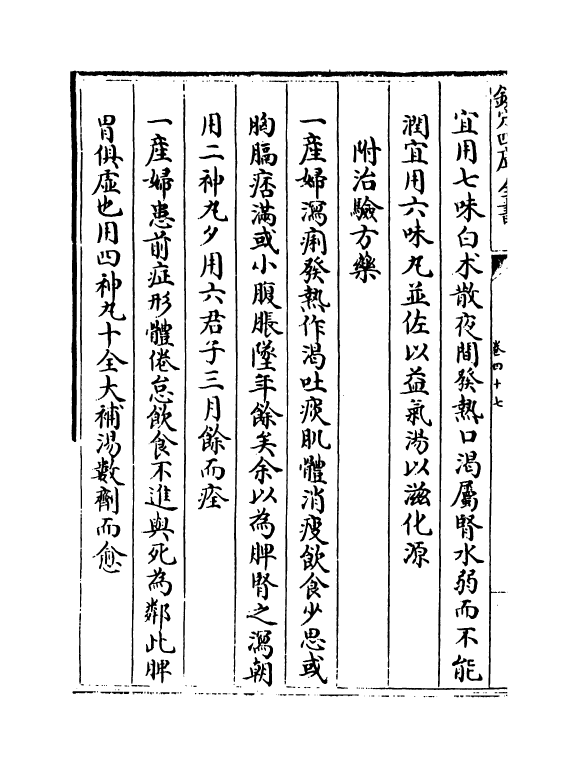 欽定四庫全書
卷四十七
宜用七味白朮散夜間發熱口渴屬腎水弱而不能
潤宜用六味丸並佐以益氣湯以滋化源
附治驗方藥
一産婦瀉痢發熱作渴吐痰肌體消瘦飲食少思或
胸膈痞滿或小腹脹墜年餘矣余以為脾腎之瀉朝
用二神丸夕用六君子三月餘而痊
一産婦患前症形體倦怠飲食不進與死為鄰此脾
胃俱虛也用四神丸十全大補湯數劑而愈